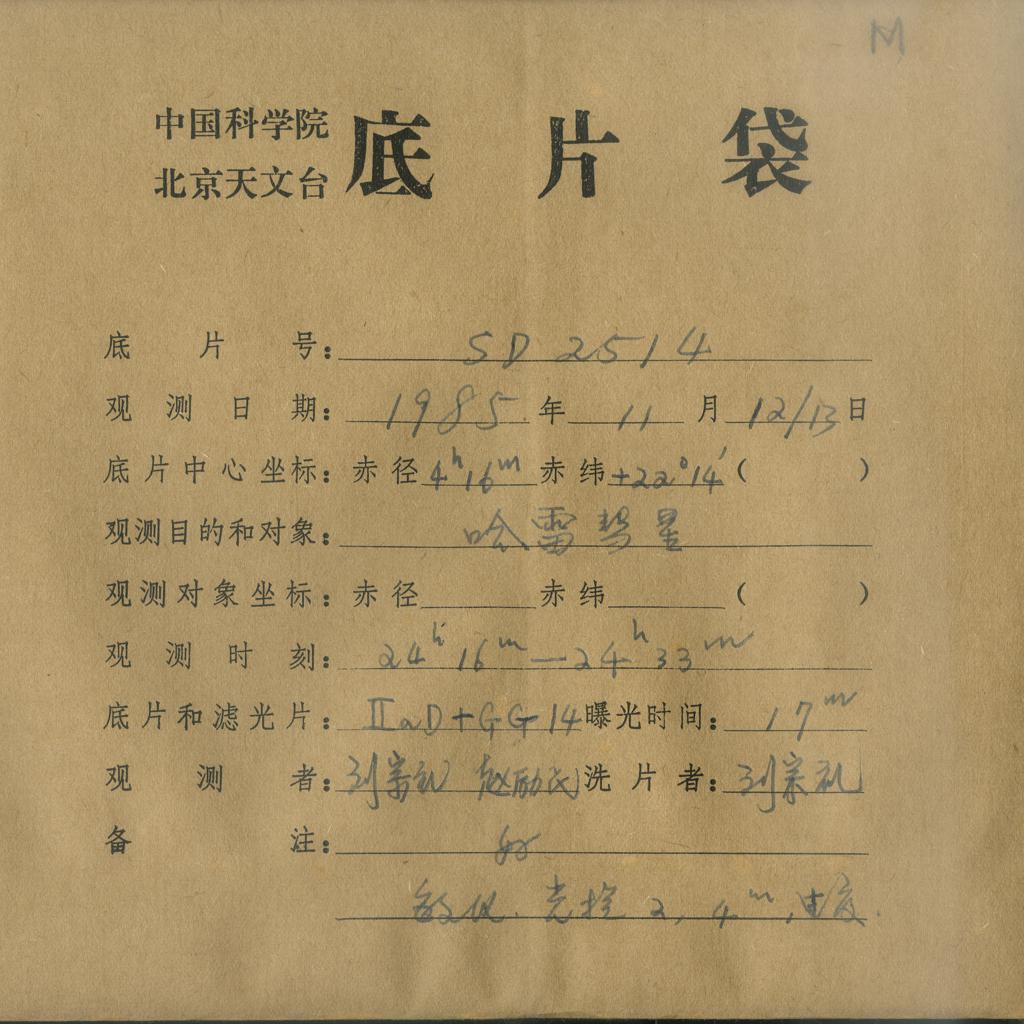 M
中国科学院
北京天文台
底片袋
底片号：SD 2514
观测日期：1985年11月12/13日
底片中心坐标：赤径4h16m赤纬+22°14′（ ）
观测目的和对象：哈雷彗星
观测对象坐标：赤径 赤纬 （ ）
观测时刻：24h16m—24h33m
底片和滤光片：ⅡaD+GG14曝光时间：17m
观测者：刘宗礼 赵励民洗片者：刘宗礼
备注：好
2, 4m,